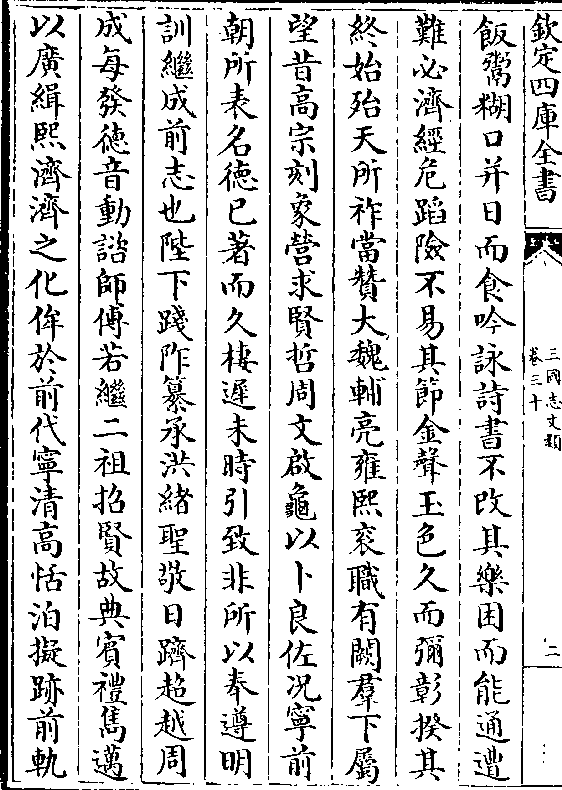 欽定四庫全書
三國志文類
卷三十
二
飯鬻糊口并日而食吟詠詩書不改其樂困而能通遭
難必濟經危蹈險不易其節金聲玉色久而彌彰揆其
終始殆天所祚當贊大魏輔亮雍熙衮職有闕羣下屬
望昔高宗刻象營求賢哲周文啟龜以卜良佐況寧前
朝所表名德已著而久棲遲未時引致非所以奉遵明
訓繼成前志也陛下踐阼纂承洪緒聖敬日躋超越周
成每發德音動諮師傅若繼二祖招賢故典賓禮雋邁
以廣緝熙濟濟之化侔於前代寧清高恬泊擬跡前軌